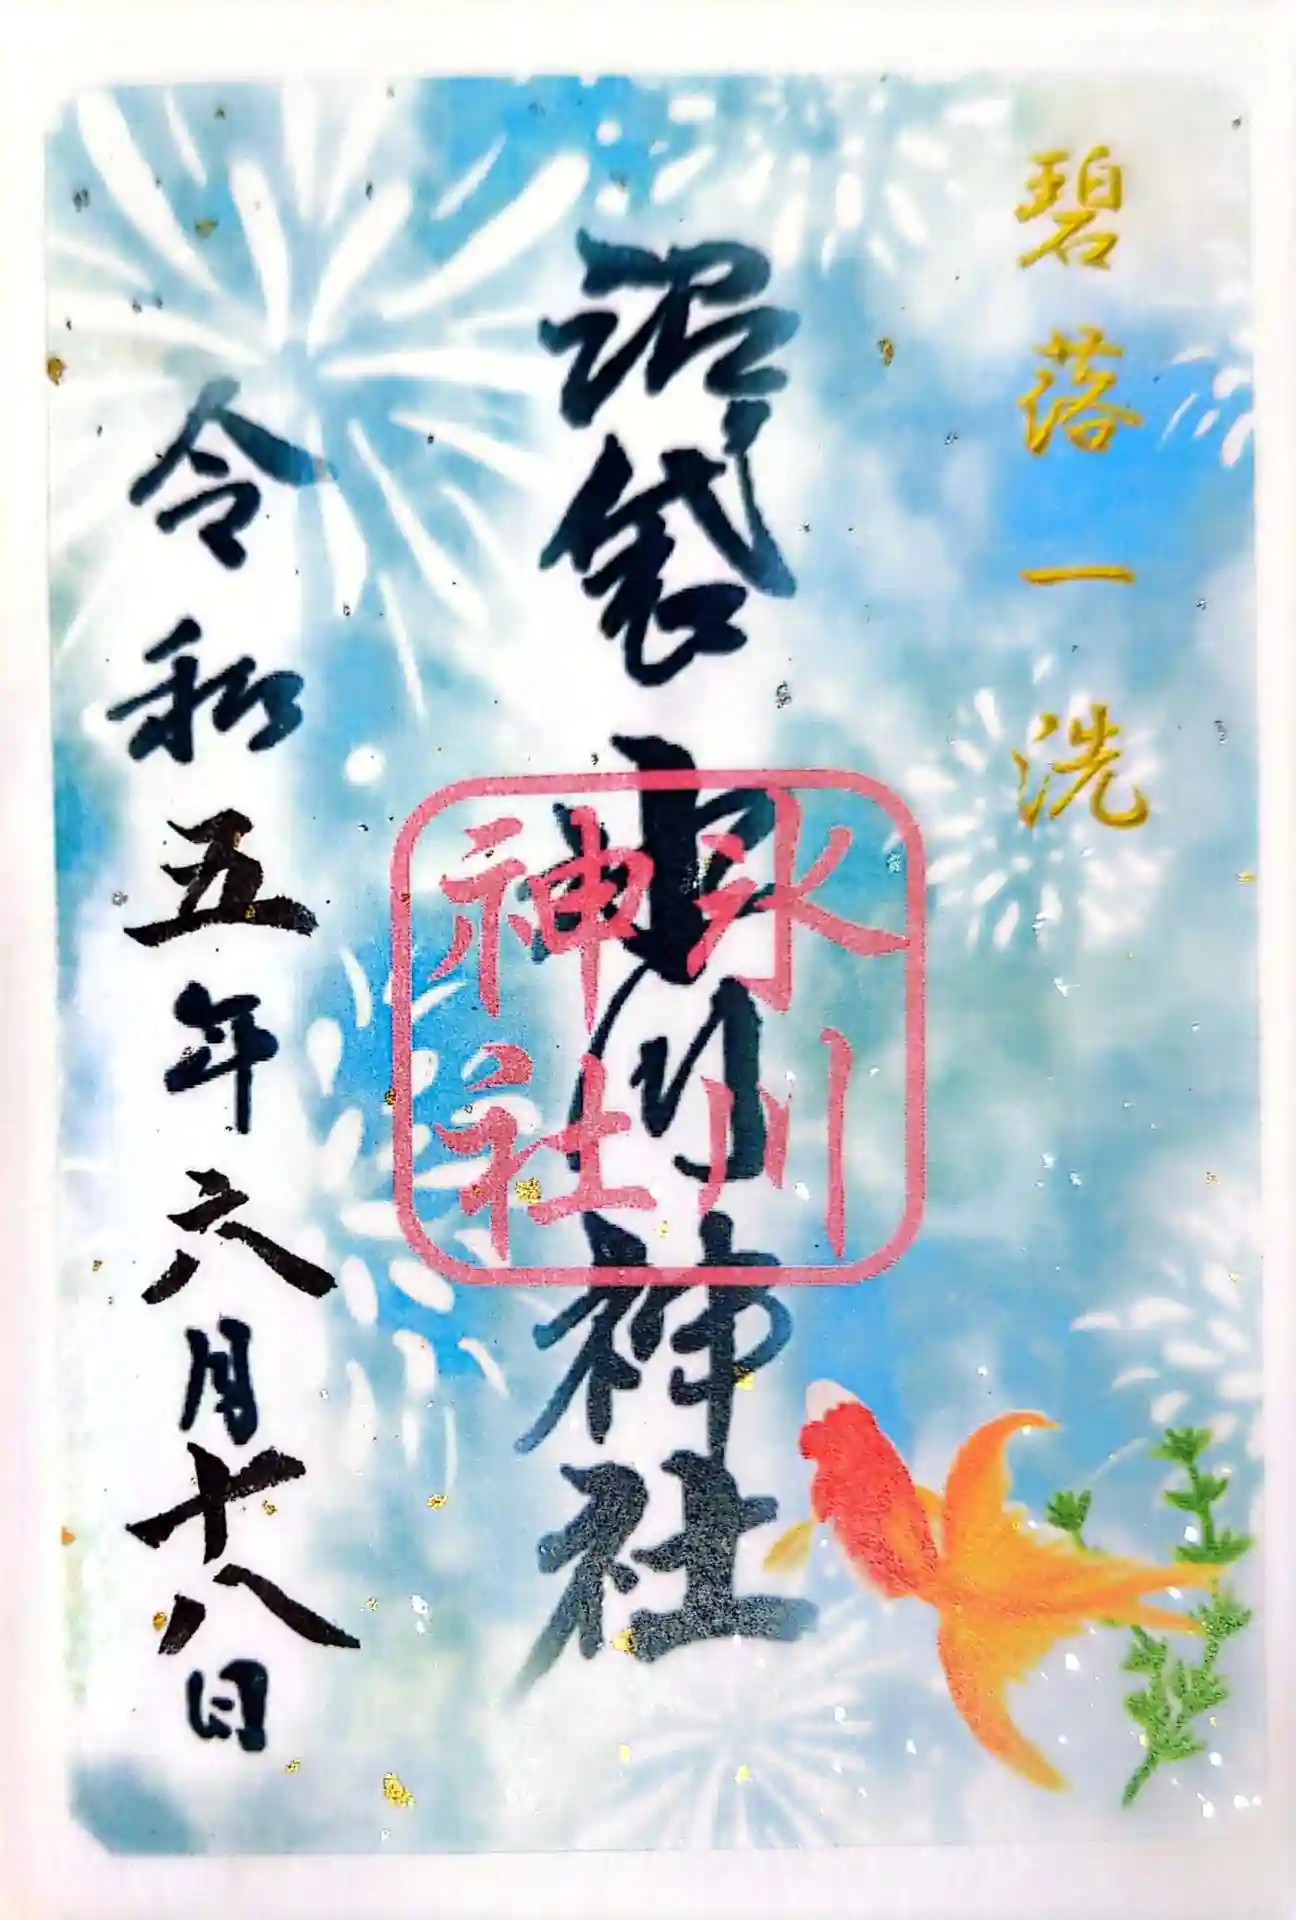 碧落一洗
沼袋氷川神社
氷川
神社
令和五年六月十八日